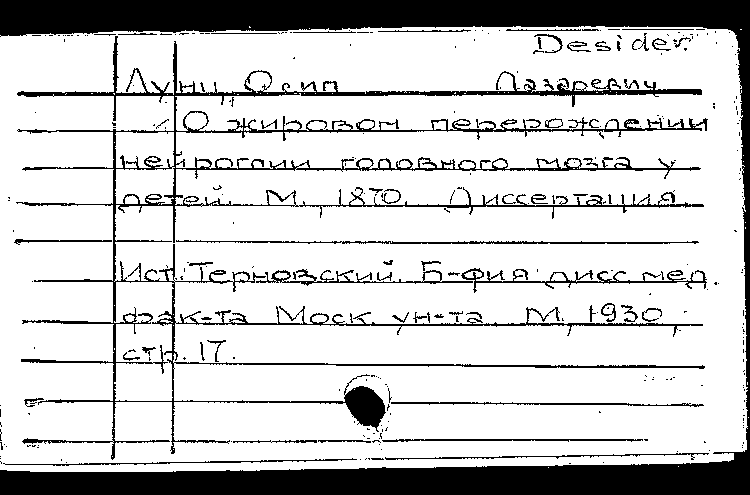 Desider.
Лунц, Осип Лазаревич
О жировом перерождении
нейроглии головного мозга у
детей. М., 1870. Диссертация.
Ист.: Терновский. Б-фия дисс. мед.
фак-та Моск. ун-та. М., 1930,
стр. 17.